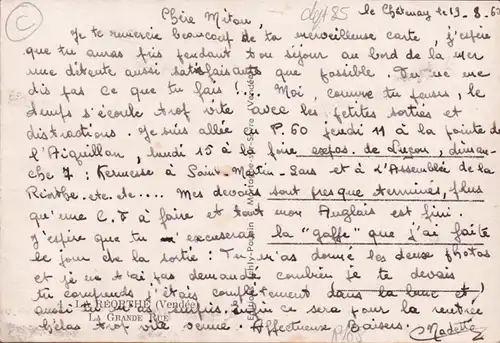 C
Chère Mitou,
le Châtenay le 19-8-6
Je te remercie beaucoup de ta merveilleuse carte, j'espère
que tu auras pris pendant ton séjour au bord de la mer
une détente aussi satisfaisante que possible. Tu ne me
dis pas ce que tu fais!... Moi, comme tu penses, le
temps s'écoule trop vite avec les petites sorties et
distractions. Je suis allée en P.60 jeudi 11 à la pointe de
l'Aiguillon, lundi 15 à la foire expos. de Luçon, diman-
che 7: Kermesse à Saint-Martin-Lars et à l'Assemblée de la
Réorthe. etc. etc.... Mes devoirs sont presque terminés, plus
qu'une à faire et tout mon Anglais est fini.
J'espère que tu m'excuseras la "gaffe" que j'ai faite
le jour de la sortie: Tu m'as donné les deux photos
et je ne t'ai pas demandé combien je te devais
tu comprends j'étais complètement dans la lune et
LA RÉORTHE (Vendée)
aussi tu m'as surpris. Enfin ce sera pour la rentrée
LA GRANDE RUE
hélas trop vite venue. Affectueux Baisers. Nadette